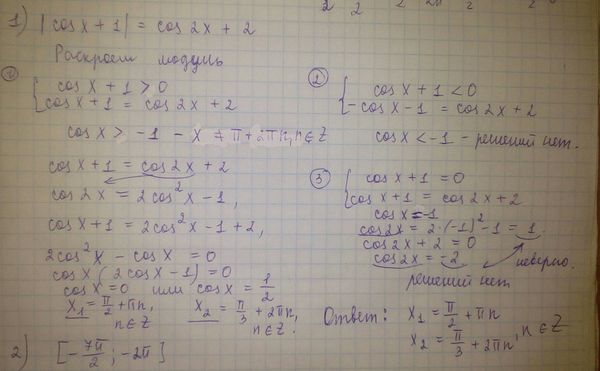 1) |cos x + 1| = cos 2x + 2
Раскроем модуль
① { cos x + 1 > 0
cos x + 1 = cos 2x + 2
cos x > -1 - x ≠ π + 2πn, n∈Z
cos x + 1 = cos 2x + 2
cos 2x = 2cos²x - 1,
cos x + 1 = 2cos²x - 1 + 2,
2cos²x - cos x = 0
cos x (2cos x - 1) = 0
cos x = 0 или cos x = 1/2
x₁ = π/2 + πn, x₂ = π/3 + 2πn,
n∈Z n∈Z.
② { cos x + 1 < 0
-cos x - 1 = cos 2x + 2
cos x < -1 - решений нет.
③ { cos x + 1 = 0
cos x + 1 = cos 2x + 2
cos x = -1
cos 2x = 2·(-1)² - 1 = 1.
cos 2x + 2 = 0
cos 2x = -2 неверно.
решений нет
Ответ: x₁ = π/2 + πn
x₂ = π/3 + 2πn, n∈Z
2) [-7π/2; -2π]